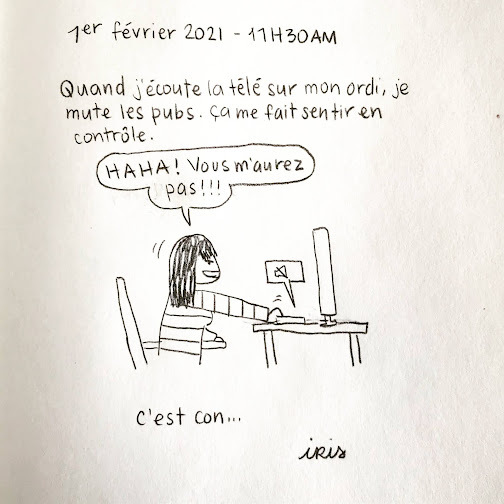 1er février 2021 - 11H30AM
Quand j'écoute la télé sur mon ordi, je
mute les pubs. ça me fait sentir en
contrôle.
HAHA! Vous m'aurez
pas!!!
c'est con...
iris